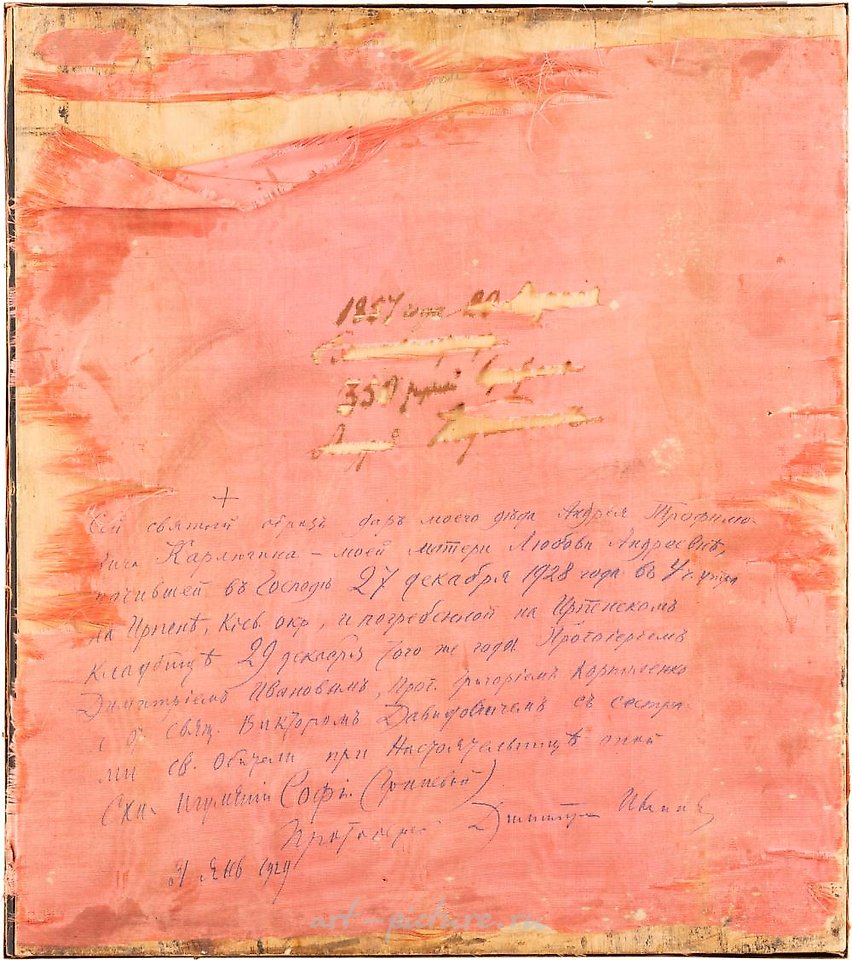 1857 года 20
350 рублей
+
Сей святой образъ даръ моего дѣда Андрея Трофимо-
вича Карпычина – моей матери Любови Андреевнѣ,
почившей въ Господѣ 27 декабря 1928 года въ 4 ч. утра
на Ирпенѣ, Кіев. окр., и погребенной на Ирпенскомъ
кладбищѣ 29 декабря того же года Протоіереемъ
Димитріемъ Ивановымъ, Прот. Григоріемъ
свящ. Викторомъ Давидовичемъ съ сестра-
ми св. Обители при Настоятельницѣ оной
Схи- Игуменіи Софіи (Гриневой)
Протоіерей Димитрій Ивановъ
Янв 1929
art-picture.ru